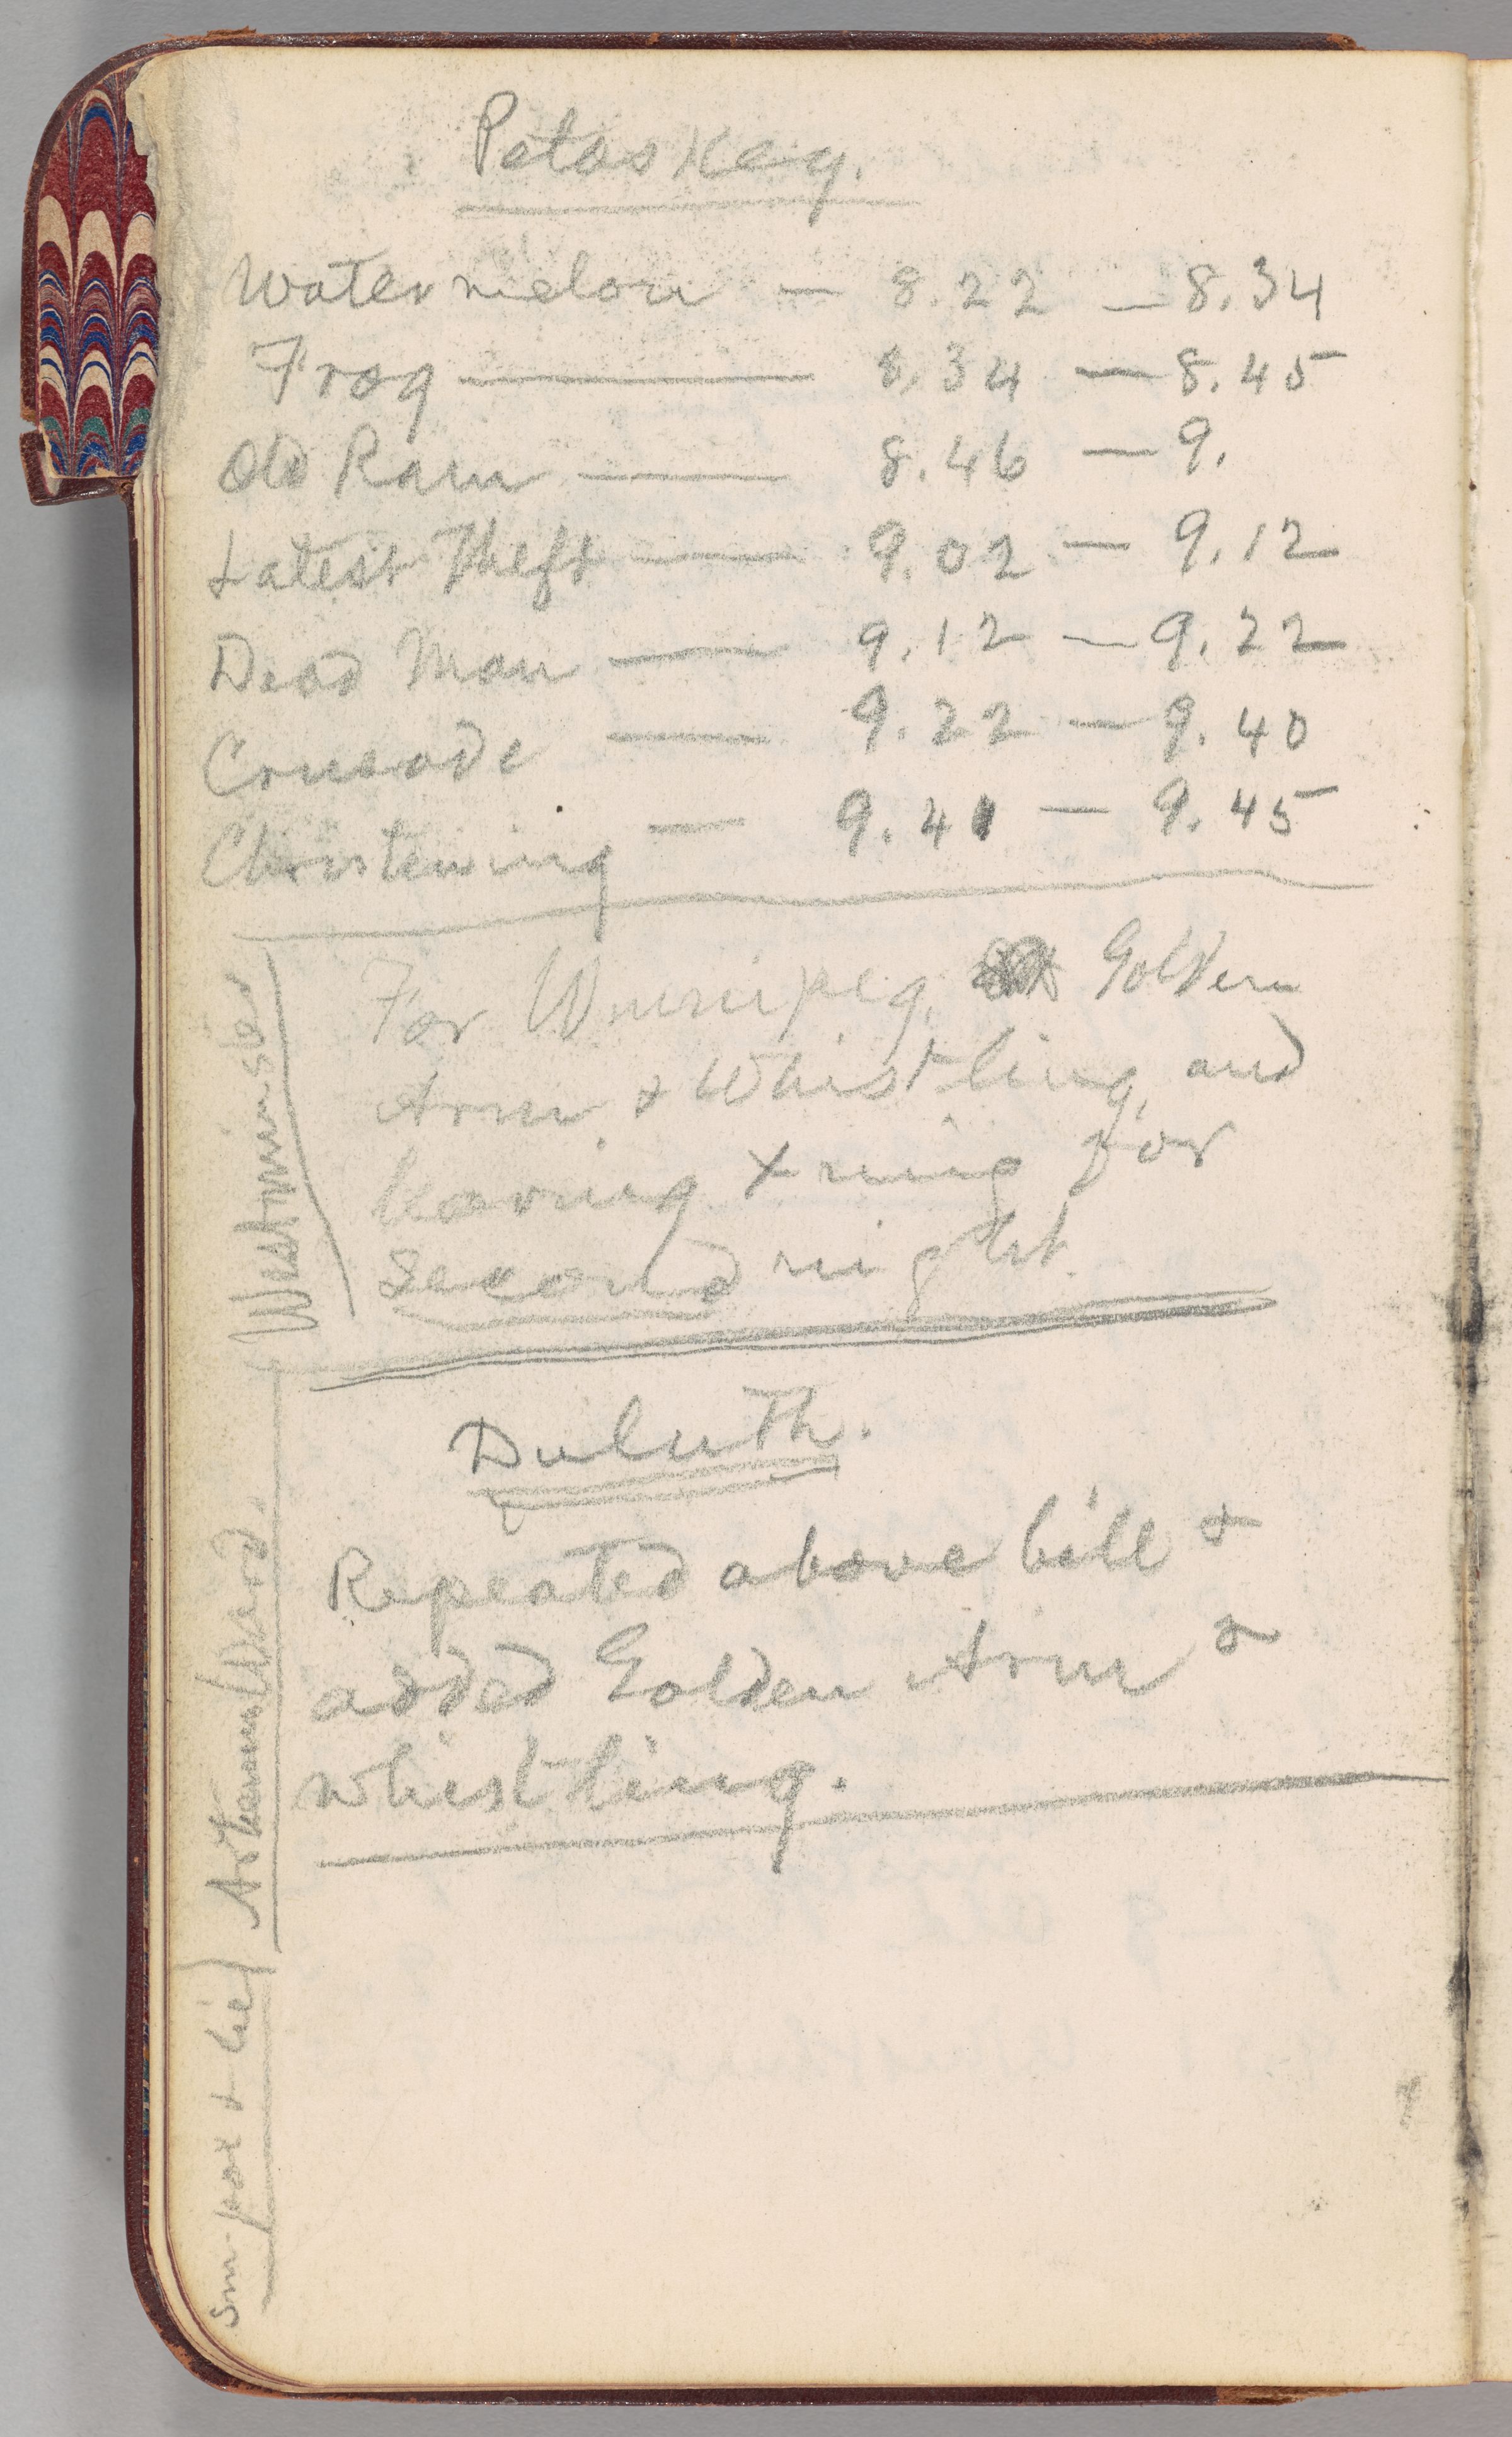 Petoskey.
Watermelon — 8.22 — 8.34
Frog — 8.34 — 8.45
Old Ram — 8.46 — 9.
Latest Theft — 9.02 — 9.12
Dead Man — 9.12 — 9.22
Crusade — 9.22 — 9.40
Christening — 9.41 — 9.45
For Winnipeg, Golden
Arm & Whistling, and
leaving Xning for
second night.
Duluth.
Repeated above bill &
added Golden Arm &
whistling.
Westminster
Artemus Ward.
Sm-pox & Lie